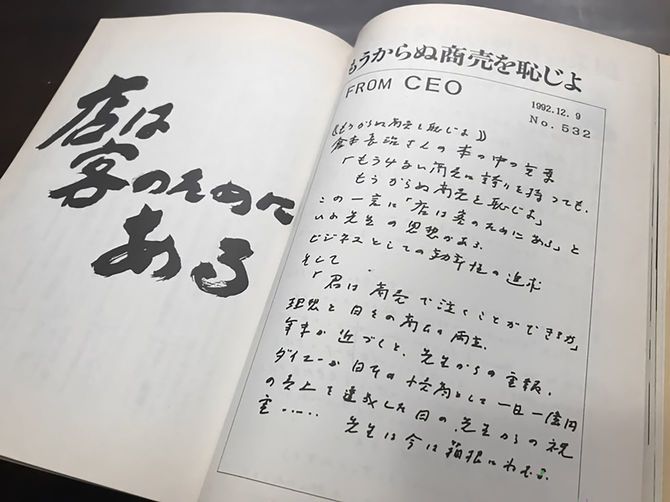 店は
客のために
ある
もうからぬ商売を恥じよ
FROM CEO
1992.12.9
No.532
《もうからぬ商売を恥じよ》
倉本長治さんの本の中の言葉
「もうけない商売に誇りを持っても、
もうからぬ商売を恥じよ」
この一言に「店は客のためにある」と
いふ先生の思想がある。
ビジネスとしての効率性の追求
そして
「君は商売で泣くことができるか」
理想と日々の商いの両立。
年末が近づくと、先生からの電報。
ダイエーが日本のとして一日一億円
の売上を達成した日の先生からの祝
電…… 先生は今は箱根にねむる。